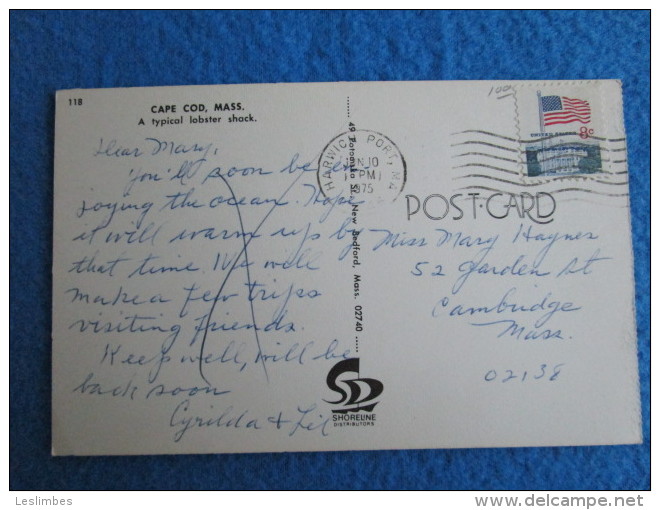 118
CAPE COD, MASS.
A typical lobster shack.
Dear Mary,
You'll soon be en-
joying the ocean. Hope
it will warm up by
that time. We will
make a few trips
visiting friends.
Keep well, will be
back soon
Cyrilda & Lil
New Bedford, Mass. 02740
SHORELINE
DISTRIBUTORS
HARWICH PORT, MA
JUN 10
PM
1975
100
UNITED STATES 8c
POST-CARD
Miss Mary Haynes
52 Garden St
Cambridge
Mass.
02138
Leslimbes
http://www.delcampe.net